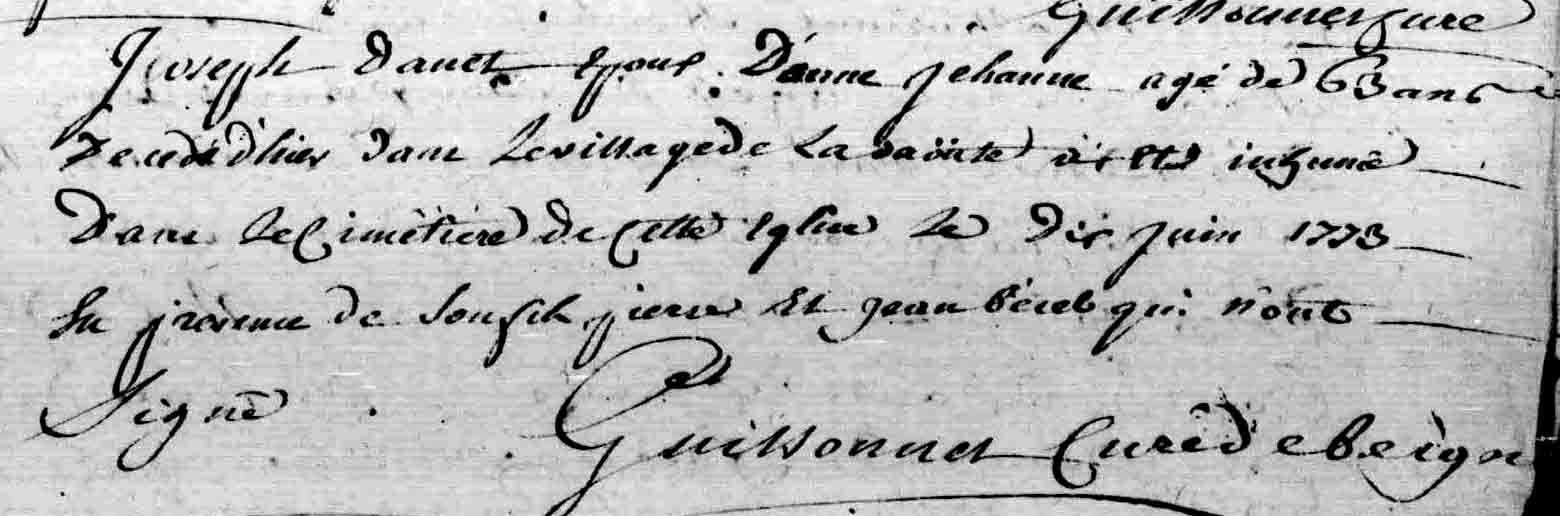 Guillonnet curé
Joseph danet Epous D'anne jehanne agé de 63 ans
Decedé d'hier dans le village de La à été inhumé
Dans le Cimétiere de Cette Eglise Le Dix juin 1773
En présence de Son fils pierre Et jean qui n'ont
Signé
Guillonnet Curé de beign